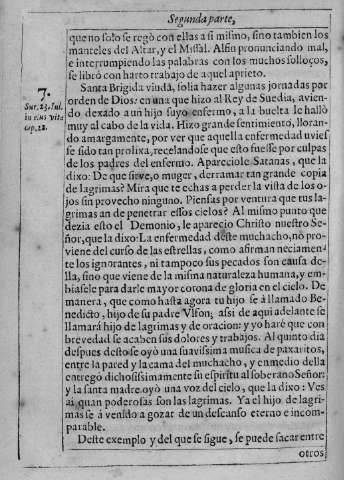 Segunda parte,
que no solo se regò con ellas a si mismo, sino tambien los
manteles del Altar, y el Missal. Alfin pronunciando mal,
e interrumpiendo las palabras con los muchos solloços,
se librò con harto trabajo de aquel aprieto.
7.
Sur. 23. Iul.
in eius vita
cap. 28.
Santa Brigida viuda, solia hazer algunas jornadas por
orden de Dios: en una que hizo al Rey de Suedia, avien-
do dexado a un hijo suyo enfermo, a la buelta le hallò
muy al cabo de la vida. Hizo grande sentimiento, lloran-
do amargamente, por ver que aquella enfermedad uvies
se sido tan prolixa, recelandose que esto fuesse por culpas
de los padres del enfermo. Apareciole Satanas, que la
dixo: De que sirve, o muger, derramar tan grande copia
de lagrimas? Mira que te echas a perder la vista de los o-
jos sin provecho ninguno. Piensas por ventura que tus la-
grimas an de penetrar essos cielos? Al mismo punto que
dezia esto el Demonio, le aparecio Christo nuestro Se-
ñor, que la dixo: La enfermedad deste muchacho, no pro-
viene del curso de las estrellas, como afirman neciamen-
te los ignorantes, ni tampoco sus pecados son causa de-
lla, sino que viene de la misma naturaleza humana, y em-
biasele para darle mayor corona de gloria en el cielo. De
manera, que como hasta agora tu hijo se à llamado Be-
nedicto, hijo de su padre Vlfon; assi de aqui adelante se
llamarà hijo de lagrimas y de oracion: y yo harè que con
brevedad se acaben sus dolores y trabajos. Al quinto dia
despues desto se oyò una suavissima musica de paxaritos,
entre la pared y la cama del muchacho, y en medio della
entregò dichosissimamente su espiritu al soberano Señor:
y la santa madre oyò una voz del cielo, que la dixo: Ves
ai quan poderosas son las lagrimas. Ya el hijo de lagri-
mas se à venido a gozar de un descanso eterno e incom-
parable.
Deste exemplo y del que se sigue, se puede sacar entre
otros